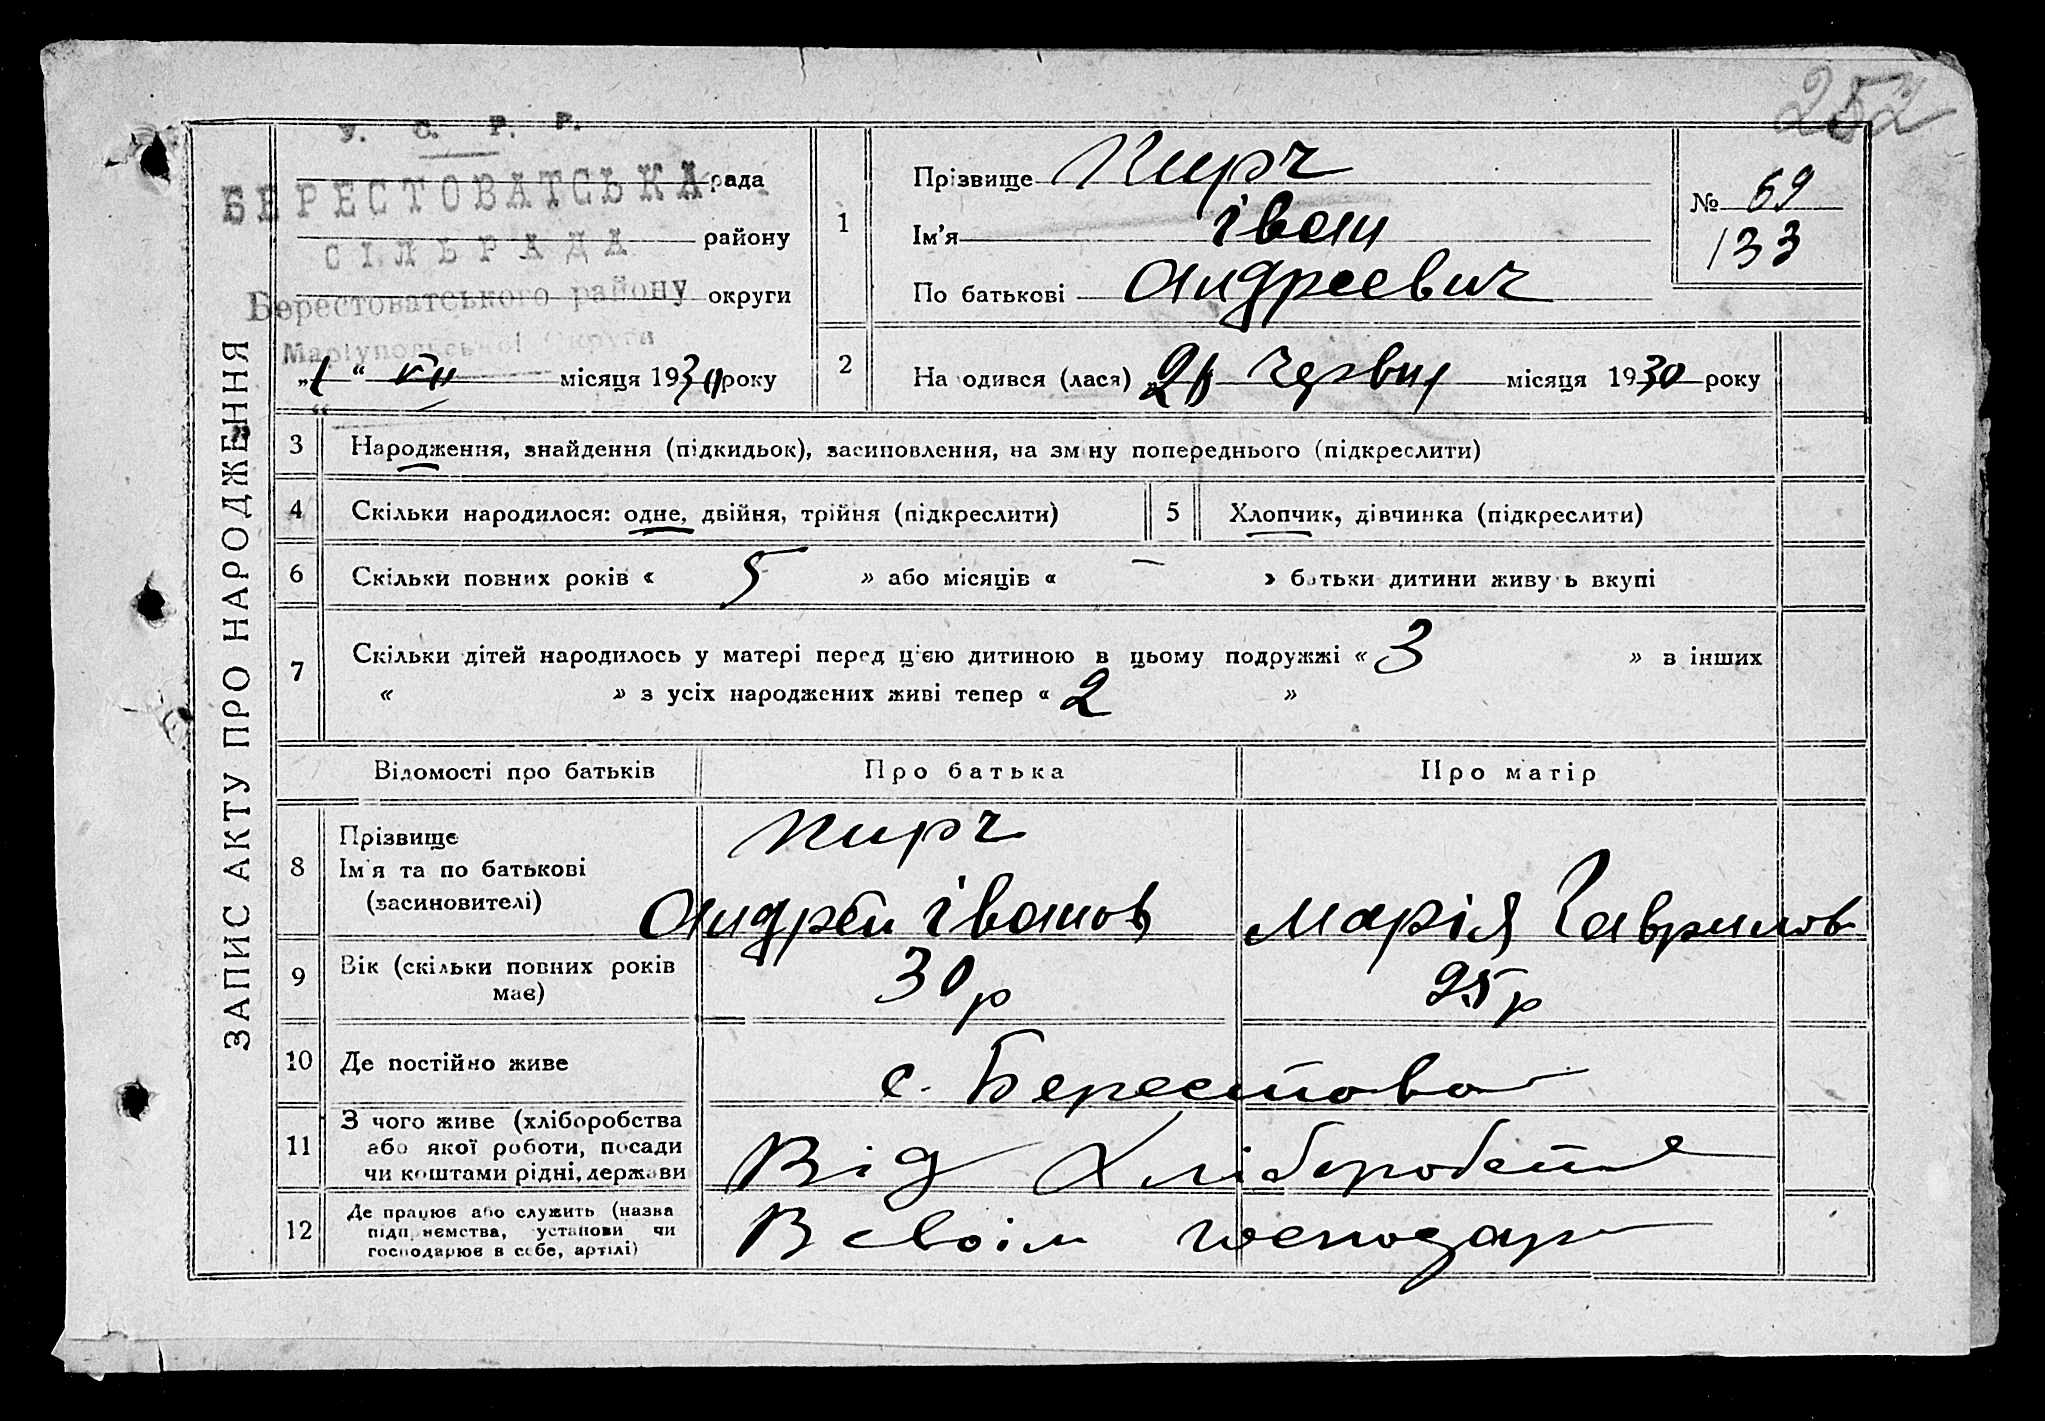 252
У. С. Р. Р.
БЕРЕСТОВАТСЬКА рада
СІЛЬРАДА району
Берестоватського району округи
Маріупольської Округи
„1“ VII місяця 1930 року
ЗАПИС АКТУ ПРО НАРОДЖЕННЯ
1
Прізвище Кирч
Ім'я Іван
По батькові Андреевич
№ 69
133
2
На одився (лася) „ червня місяця 1930 року
3 Народження, знайдення (підкидьок), засиновлення, на зміну попереднього (підкреслити)
4 Скільки народилося: одне, двійня, трійня (підкреслити)
5 Хлопчик, дівчинка (підкреслити)
6 Скільки повних років « 5 » або місяців « – » батьки дитини живуть вкупі
7 Скільки дітей народилось у матері перед цією дитиною в цьому подружжі « 3 » в інших
« » з усіх народжених живі тепер « 2 »
Відомості про батьків Про батька Про матір
8 Прізвище
Ім'я та по батькові
(засиновителі)
Кирч
Андрей Іванов
Марія Гаврилов
9 Вік (скільки повних років
має)
30 р
25 р
10 Де постійно живе
с. Берестова
11 З чого живе (хліборобства
або якої роботи, посади
чи коштами рідні, держави
Від Хліборобст
12 Де працює або служить (назва
підприємства, установи чи
господарює в себе, артілі)
В своім господар